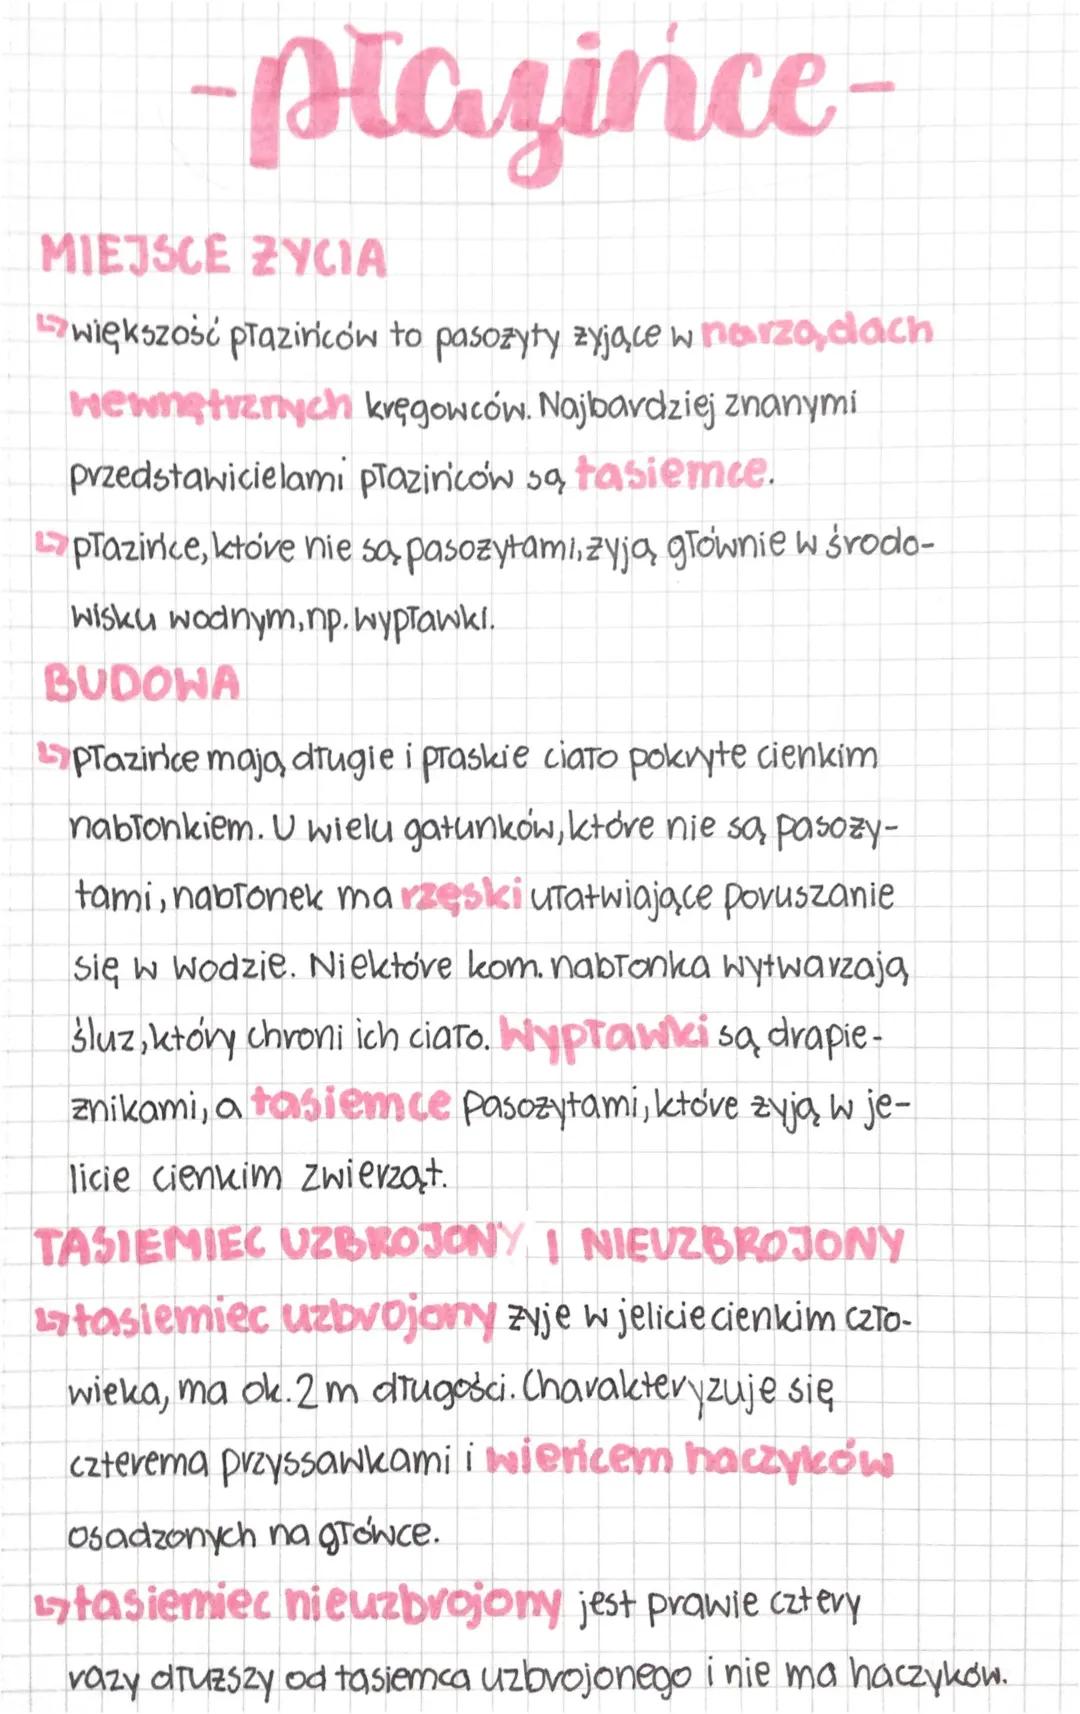 -płazińce-
MIEJSCE ŻYCIA
↳większość płazińców to pasożyty żyjące w narządach
wewnętrznych kręgowców. Najbardziej znanymi
przedstawicielami płazińców są tasiemce.
↳płazińce, które nie są pasożytami, żyją głównie w środo-
wisku wodnym, np. wypławki.
BUDOWA
↳płazińce mają długie i płaskie ciało pokryte cienkim
nabłonkiem. U wielu gatunków, które nie są pasoży-
tami, nabłonek ma rzęski ułatwiające poruszanie
się w wodzie. Niektóre kom. nabłonka wytwarzają
śluz, który chroni ich ciało. Wypławki są drapie-
żnikami, a tasiemce pasożytami, które żyją w je-
licie cienkim zwierząt.
TASIEMIEC UZBROJONY I NIEUZBROJONY
↳tasiemiec uzbrojony żyje w jelicie cienkim czło-
wieka, ma ok. 2 m długości. Charakteryzuje się
czterema przyssawkami i wieńcem haczyków
osadzonych na główce.
↳tasiemiec nieuzbrojony jest prawie cztery
razy dłuższy od tasiemca uzbrojonego i nie ma haczyków.